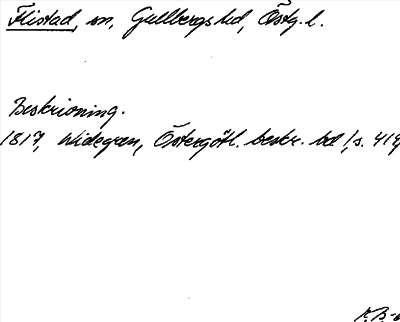 Flistad, sn, Gullbergs hd, Östg. l.
Beskrivning.
1817, Widegren, Östergötl. beskr. bd 1, s. 414